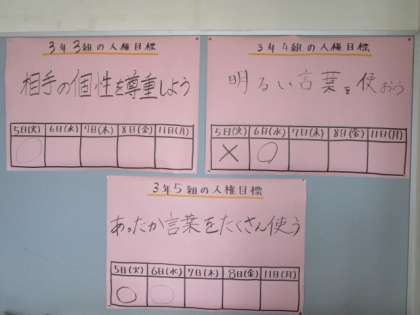 3年3組の人権目標
相手の個性を尊重しよう
5日(火) 6日(水) 7日(木) 8日(金) 11日(月)
○
3年4組の人権目標
明るい言葉を使おう
5日(火) 6日(水) 7日(木) 8日(金) 11日(月)
× ○
3年5組の人権目標
あったか言葉をたくさん使う
5日(火) 6日(水) 7日(木) 8日(金) 11日(月)
○ ○